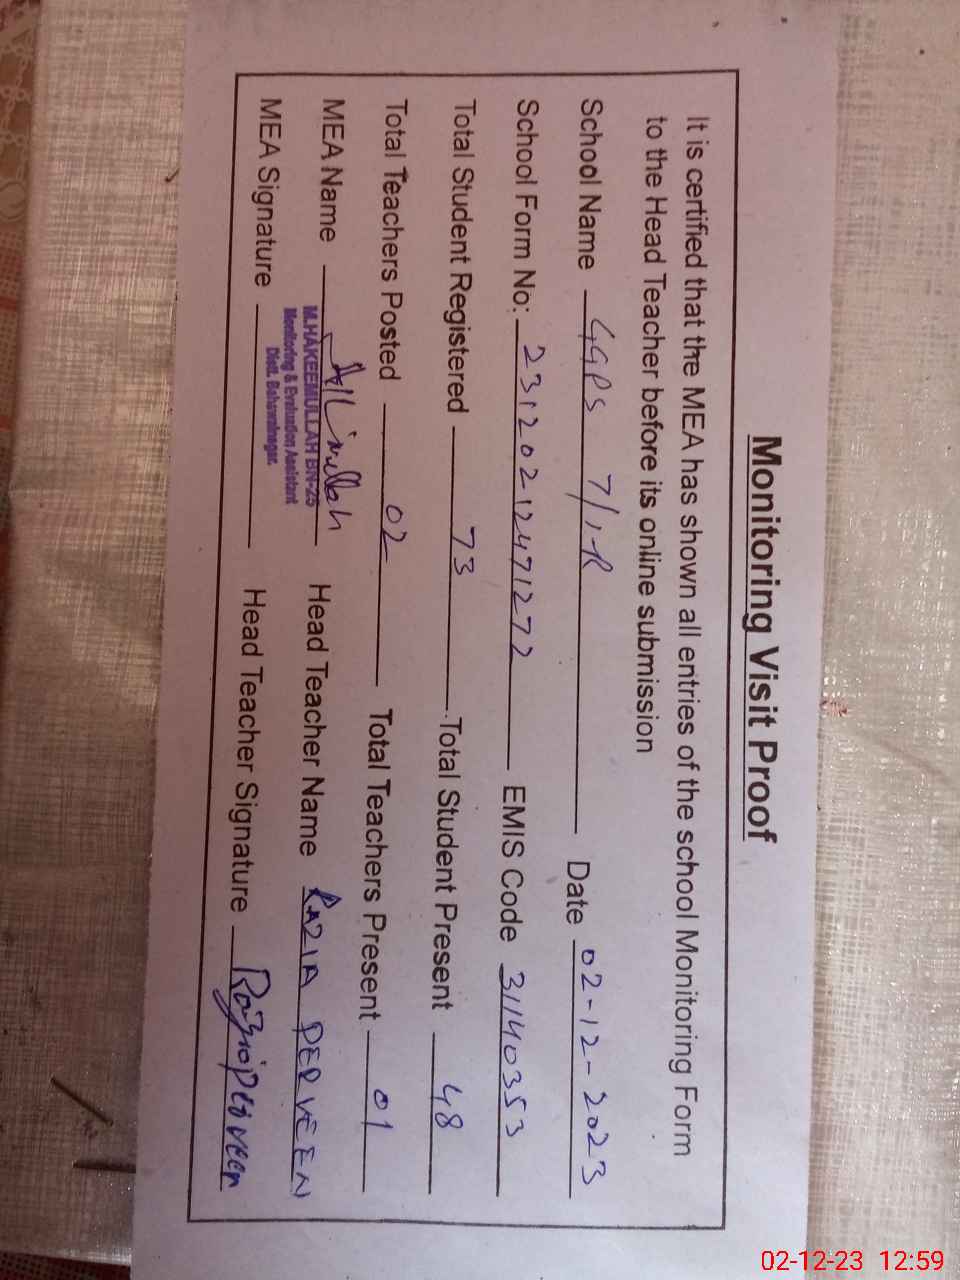 Monitoring Visit Proof
It is certified that the MEA has shown all entries of the school Monitoring Form
to the Head Teacher before its online submission
School Name GGPS 7/1R Date 02-12-2023
School Form No: 23120212471272 EMIS Code 31140353
Total Student Registered 73 Total Student Present 48
Total Teachers Posted 02 Total Teachers Present 01
MEA Name Head Teacher Name RAZIA PERVEEN
M.HAKEEMULLAH BN-25
Monitoring & Evaluation Assistant
Distt. Bahawalnagar.
MEA Signature Head Teacher Signature Razia Perveen
02-12-23 12:59